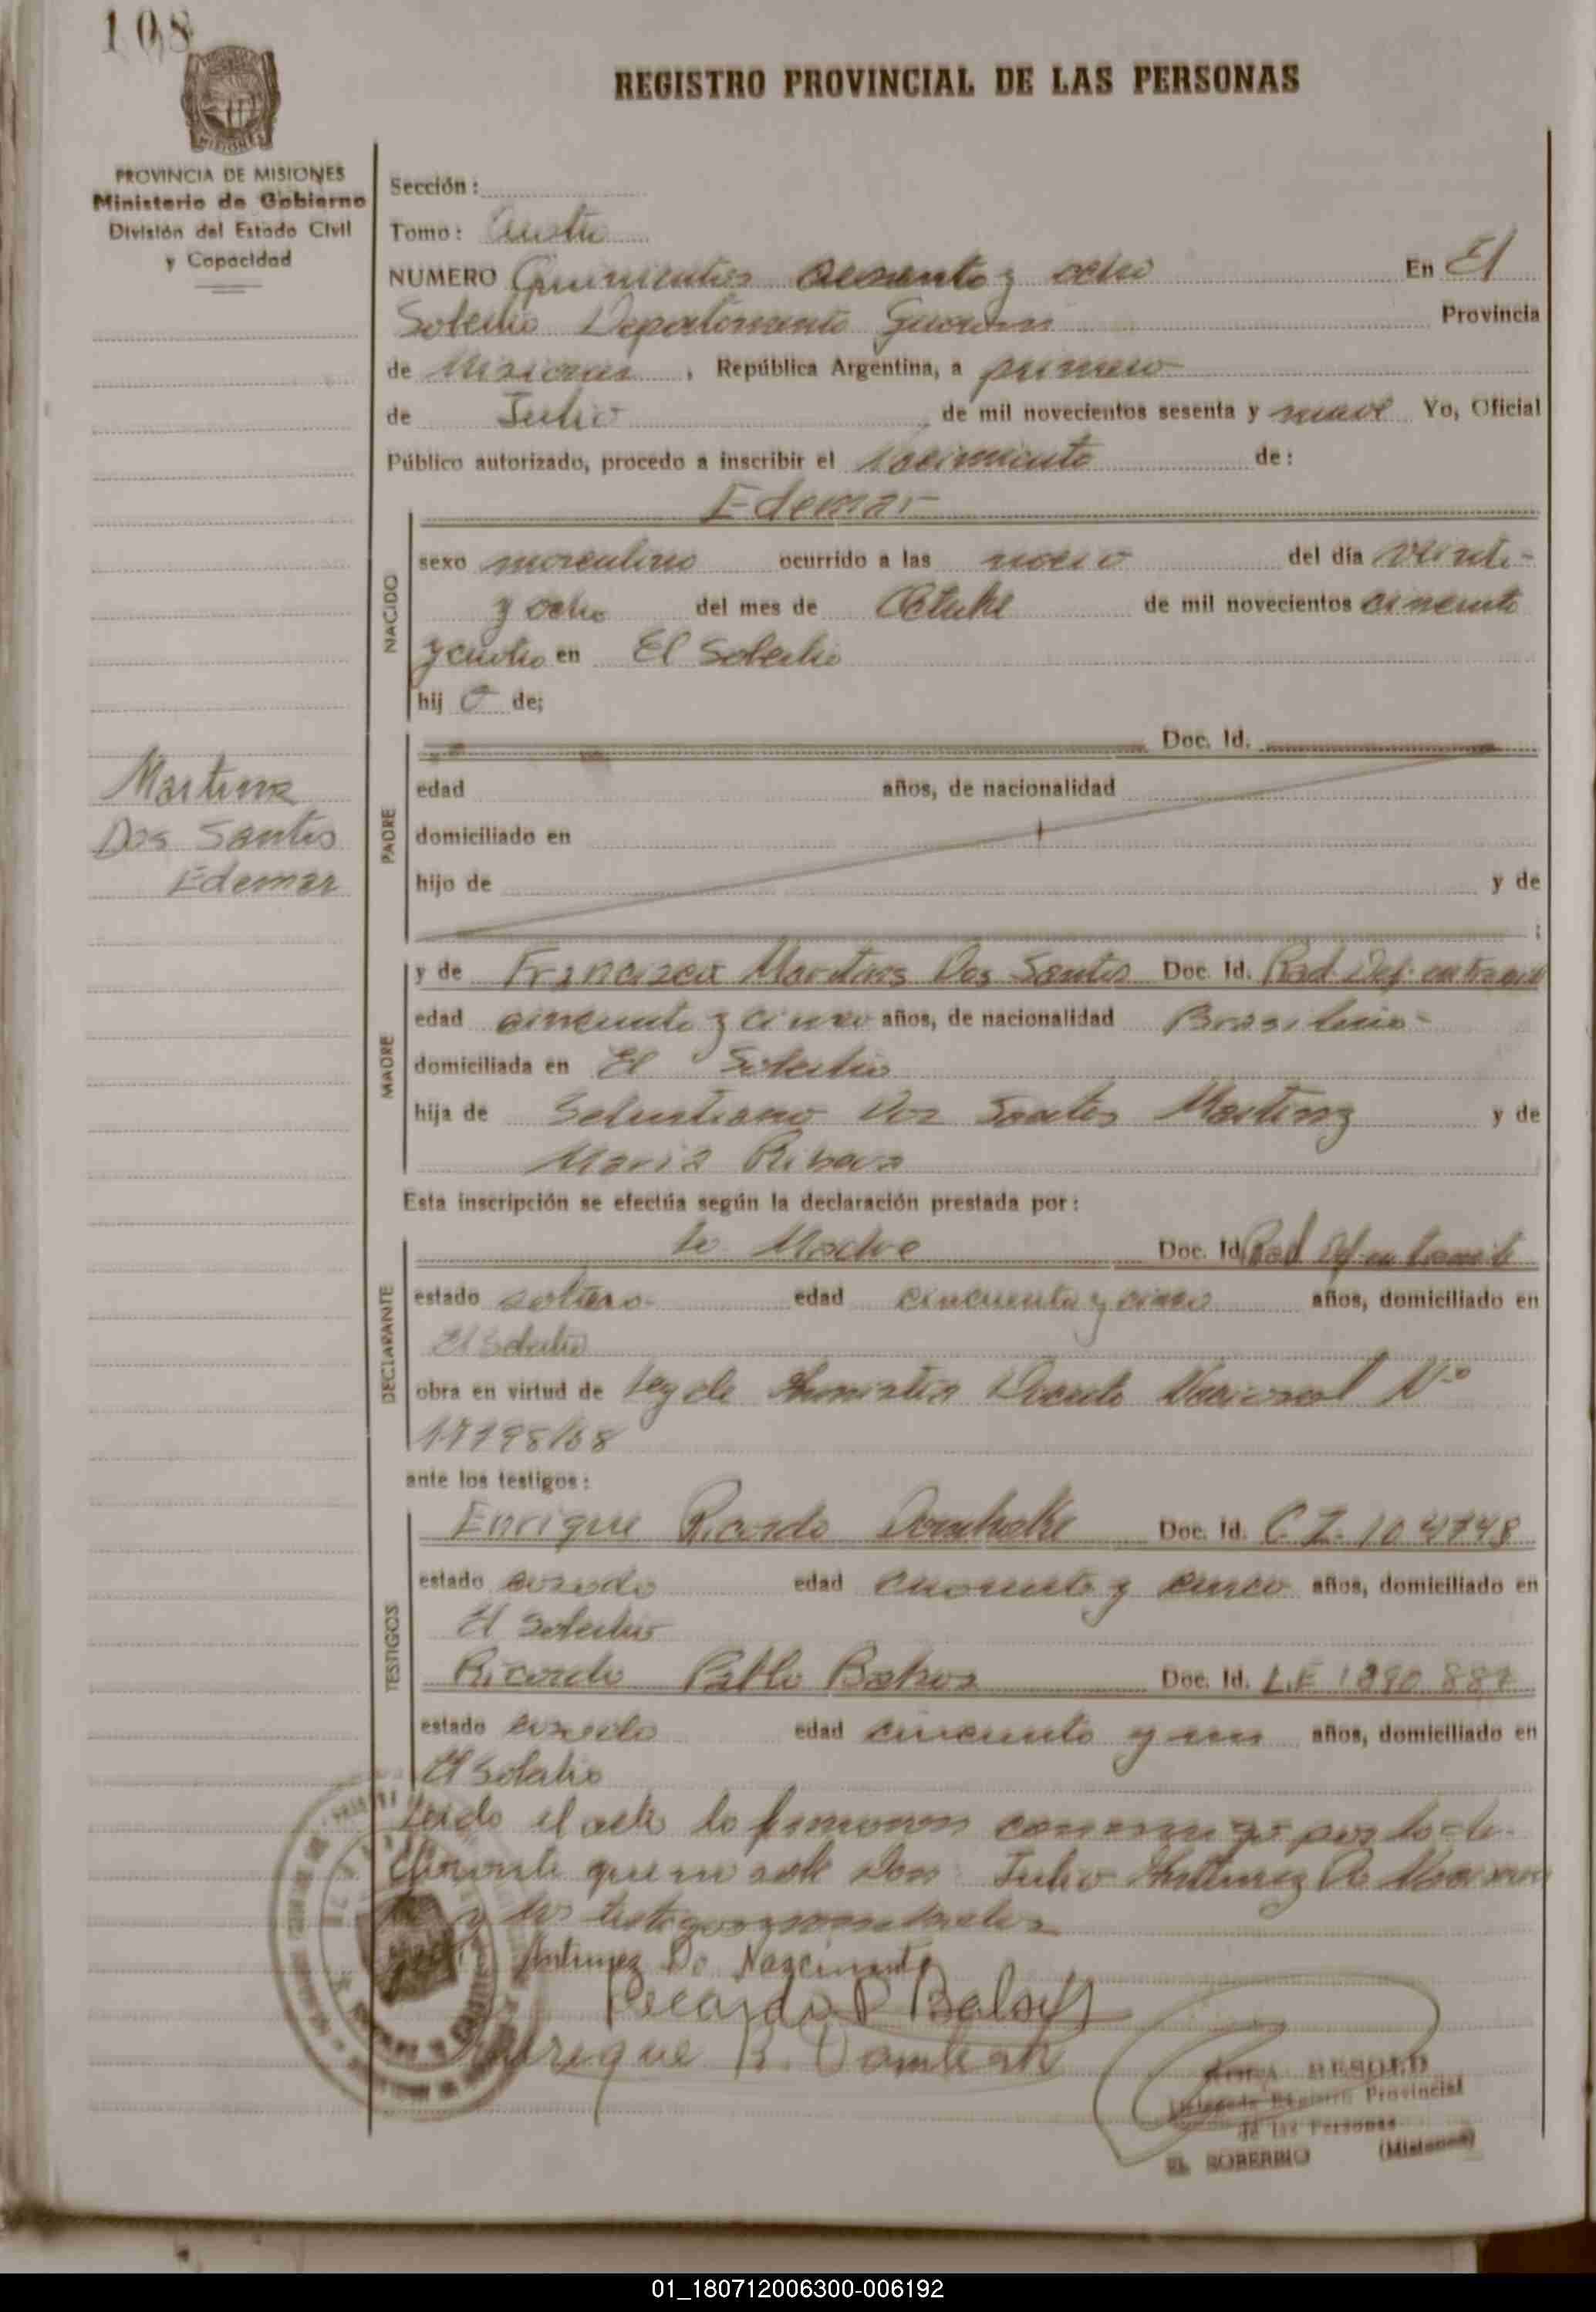 108
REGISTRO PROVINCIAL DE LAS PERSONAS
MISIONES
PROVINCIA DE MISIONES
Ministerio de Gobierno
División del Estado Civil
y Capacidad
Sección:
Tomo: Cuatro
NUMERO Quinientos sesenta y ocho En El
Soberbio Departamento Guarani Provincia
de Misiones, República Argentina, a primero
de Julio de mil novecientos sesenta y nueve Yo, Oficial
Público autorizado, procedo a inscribir el Nacimiento de:
NACIDO
Edemar
sexo masculino ocurrido a las del día veinti-
y ocho del mes de Octubre de mil novecientos cincuenta
y cuatro en El Soberbio
hijo de;
Martins
Dos Santos
Edemar
PADRE
Doc. Id.
edad años, de nacionalidad
domiciliado en
hijo de y de
MADRE
y de Francisca Martins Dos Santos Doc. Id. Rad. Def. en tramite
edad cincuenta y cinco años, de nacionalidad Brasilera
domiciliada en El Soberbio
hija de Sebastiano Dos Santos Martinz y de
Maria
Esta inscripción se efectúa según la declaración prestada por:
DECLARANTE
la Madre Doc. Id. Rad Def en tramite
estado soltera edad cincuenta y cinco años, domiciliado en
El Soberbio
obra en virtud de Ley de Amnistia Decreto Nacional Nº
ante los testigos:
TESTIGOS
Enrique Ricardo Doc. Id. C.I. 104748
estado casado edad cuarenta y cinco años, domiciliado en
El Soberbio
Ricardo Pablo Doc. Id. L.E
estado casado edad cincuenta y un años, domiciliado en
El Soberbio
Leido el acta lo firmaron conmigo por la de-
clarante que no sabe Don Julio Antunez Do
y los testigos
Antunez Do Nascimento
Ricardo P
Enrique R.
Delegada Registro Provincial
de las Personas
EL SOBERBIO (Misiones)
01_180712006300-006192